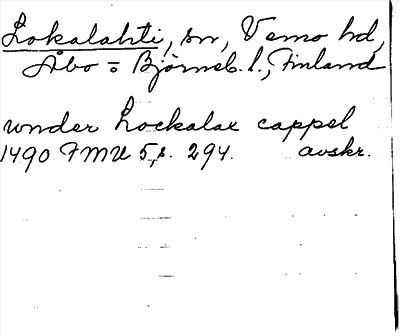 Lokalahti, sn, Vemo hd,
Åbo o Björneb. l., Finland
under Lockalax cappel
1490 FMU 5, s. 294. avskr.